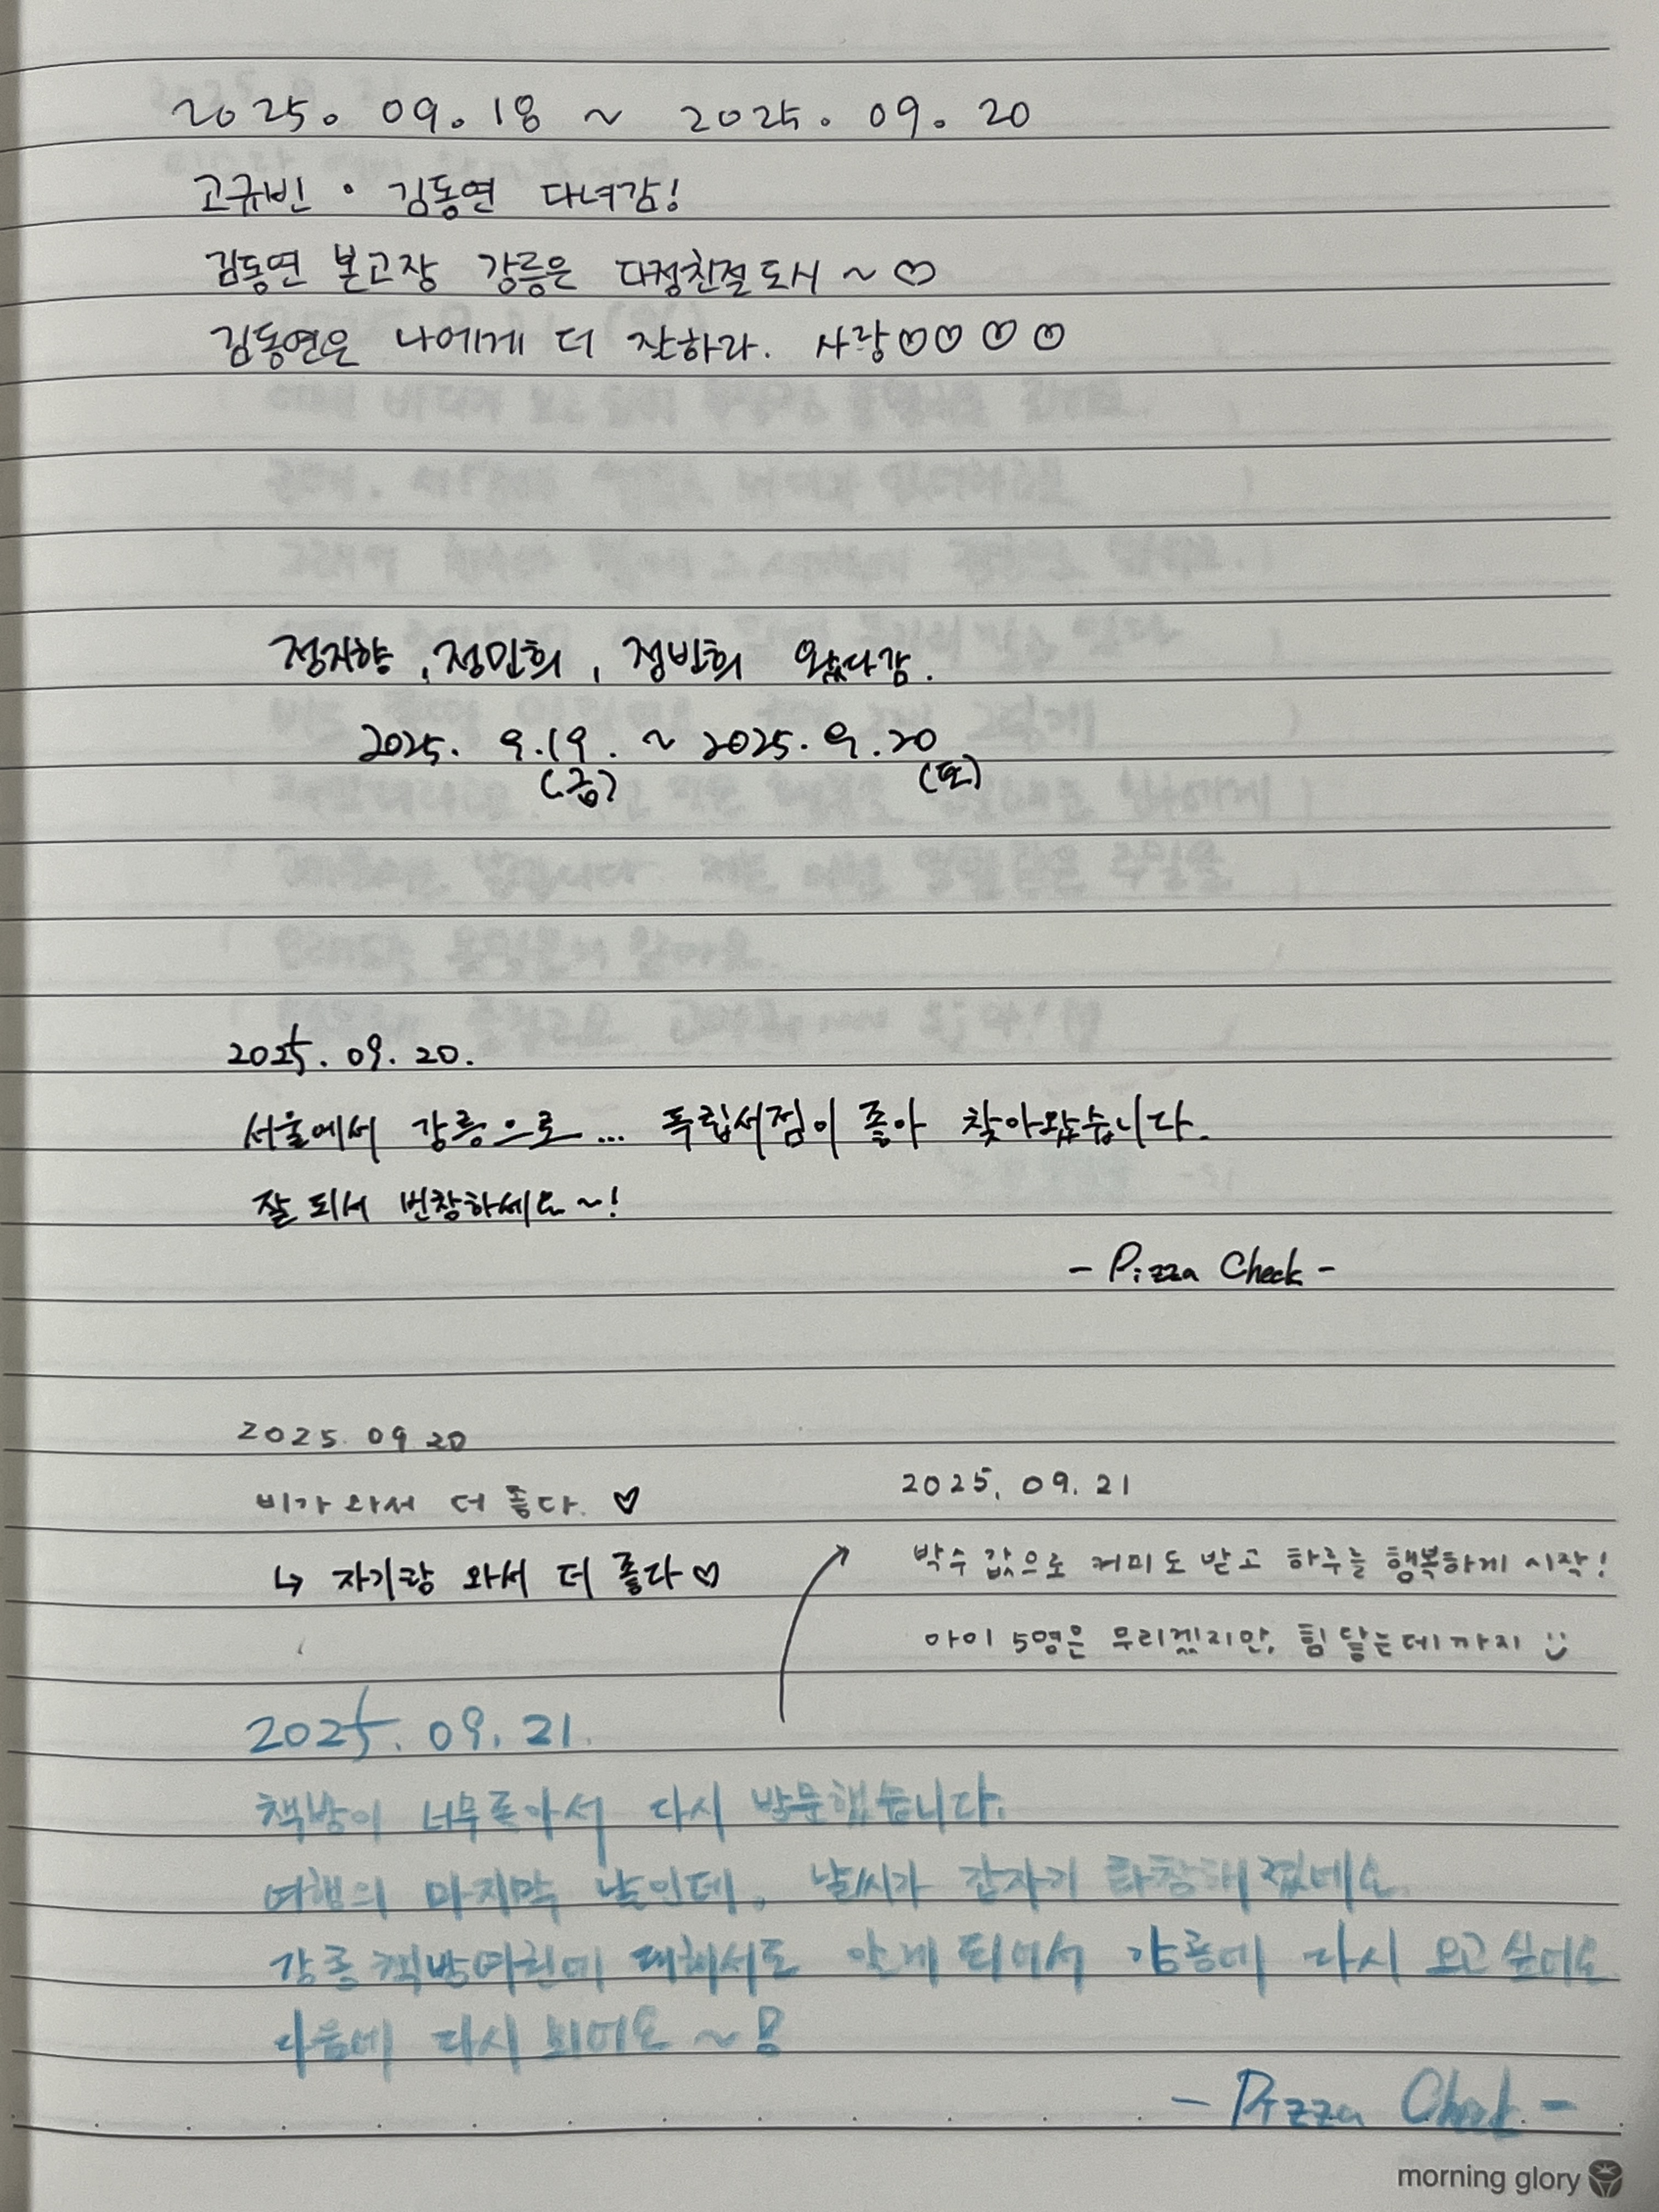 2025. 09. 18 ~ 2025. 09. 20
고규빈 · 김동연 다녀감!
김동연 본고장 강릉은 다정친절도시 ~ ♡
김동연은 나에게 더 잘하라. 사랑♡♡♡♡
정지향, 정민희, 정빈희 왔다감.
2025. 9. 19. ~ 2025. 9. 20
(금) (토)
2025. 09. 20.
서울에서 강릉으로... 독립서점이 좋아 찾아왔습니다.
잘 되서 번창하세요~!
- Pizza Check -
2025. 09 20
비가 와서 더 좋다. ♡
↳ 자기랑 와서 더 좋다♡
2025. 09. 21
박수 값으로 커피도 받고 하루를 행복하게 시작!
아이 5명은 무리겠지만, 힘 닿는데까지 :)
2025. 09. 21.
책방이 너무 좋아서 다시 방문했습니다.
여행의 마지막 날인데, 날씨가 갑자기 화창해졌네요.
강릉 책방마린에 대해서도 알게 되어서 강릉에 다시 오고 싶어요
다음에 다시 뵈어요 ~
- Pizza Check -
morning glory